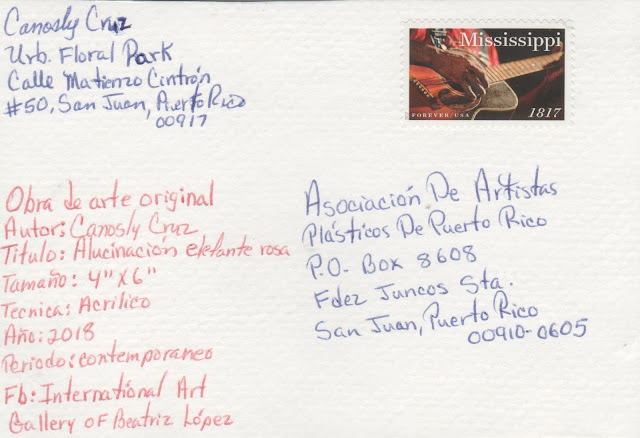 Canosly Cruz
Urb. Floral Park
Calle Matienzo Cintrón
#50, San Juan, Puerto Rico
00917
Mississippi
FOREVER/USA
1817
Obra de arte original
Autor: Canosly Cruz
Titulo: Alucinación elefante rosa
Tamaño: 4"X6"
Tecnica: Acrílico
Año: 2018
Periodo: contemporaneo
Fb: International Art
Gallery OF Beatriz López
Asociación De Artistas
Plásticos De Puerto Rico
P.O. Box 8608
Fdez Juncos Sta.
San Juan, Puerto Rico
00910-0605